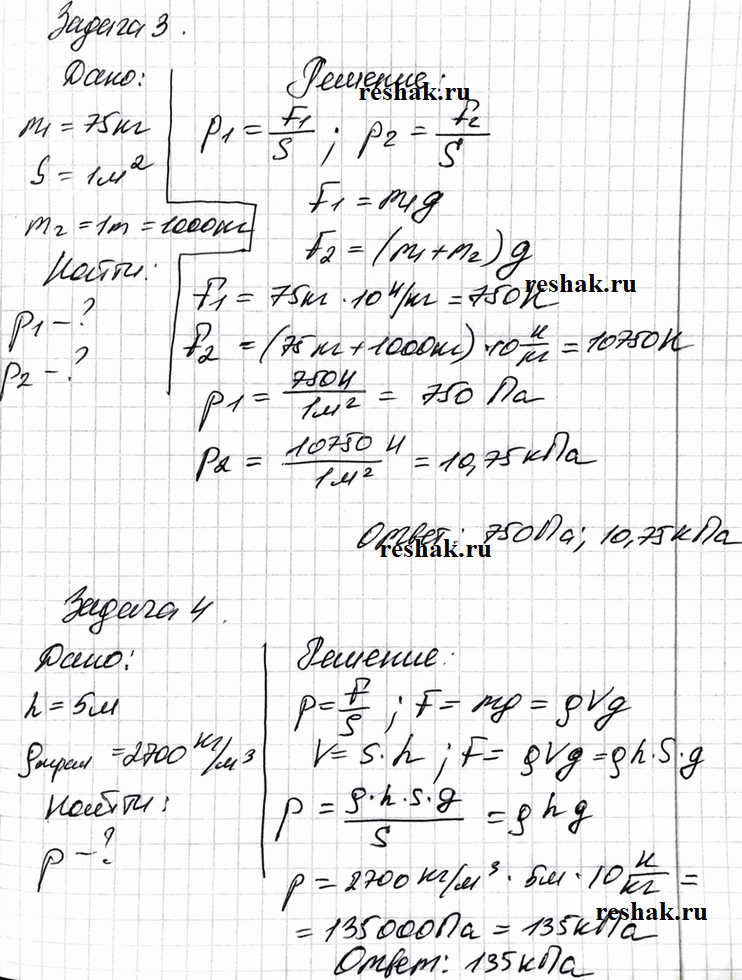 Задача 3.
Дано:
m1 = 75кг
S = 1м²
m2 = 1т = 1000кг
Найти:
p1 - ?
p2 - ?
Решение:
reshak.ru
p1 = F1/S ; p2 = F2/S
F1 = m1g
F2 = (m1+m2)g
reshak.ru
F1 = 75кг · 10 Н/кг = 750Н
F2 = (75кг + 1000кг) · 10 Н/кг = 10750Н
p1 = 750Н/1м² = 750 Па
p2 = 10750 Н/1м² = 10,75кПа
Ответ: 750Па; 10,75кПа
reshak.ru
Задача 4.
Дано:
h = 5м
ρмрам = 2700 кг/м³
Найти:
p - ?
Решение:
p = F/S ; F = mg = ρVg
V = S·h ; F = ρVg = ρh·S·g
p = ρ·h·S·g/S = ρhg
p = 2700 кг/м³ · 5м · 10 Н/кг =
reshak.ru
= 135000Па = 135кПа
Ответ: 135кПа